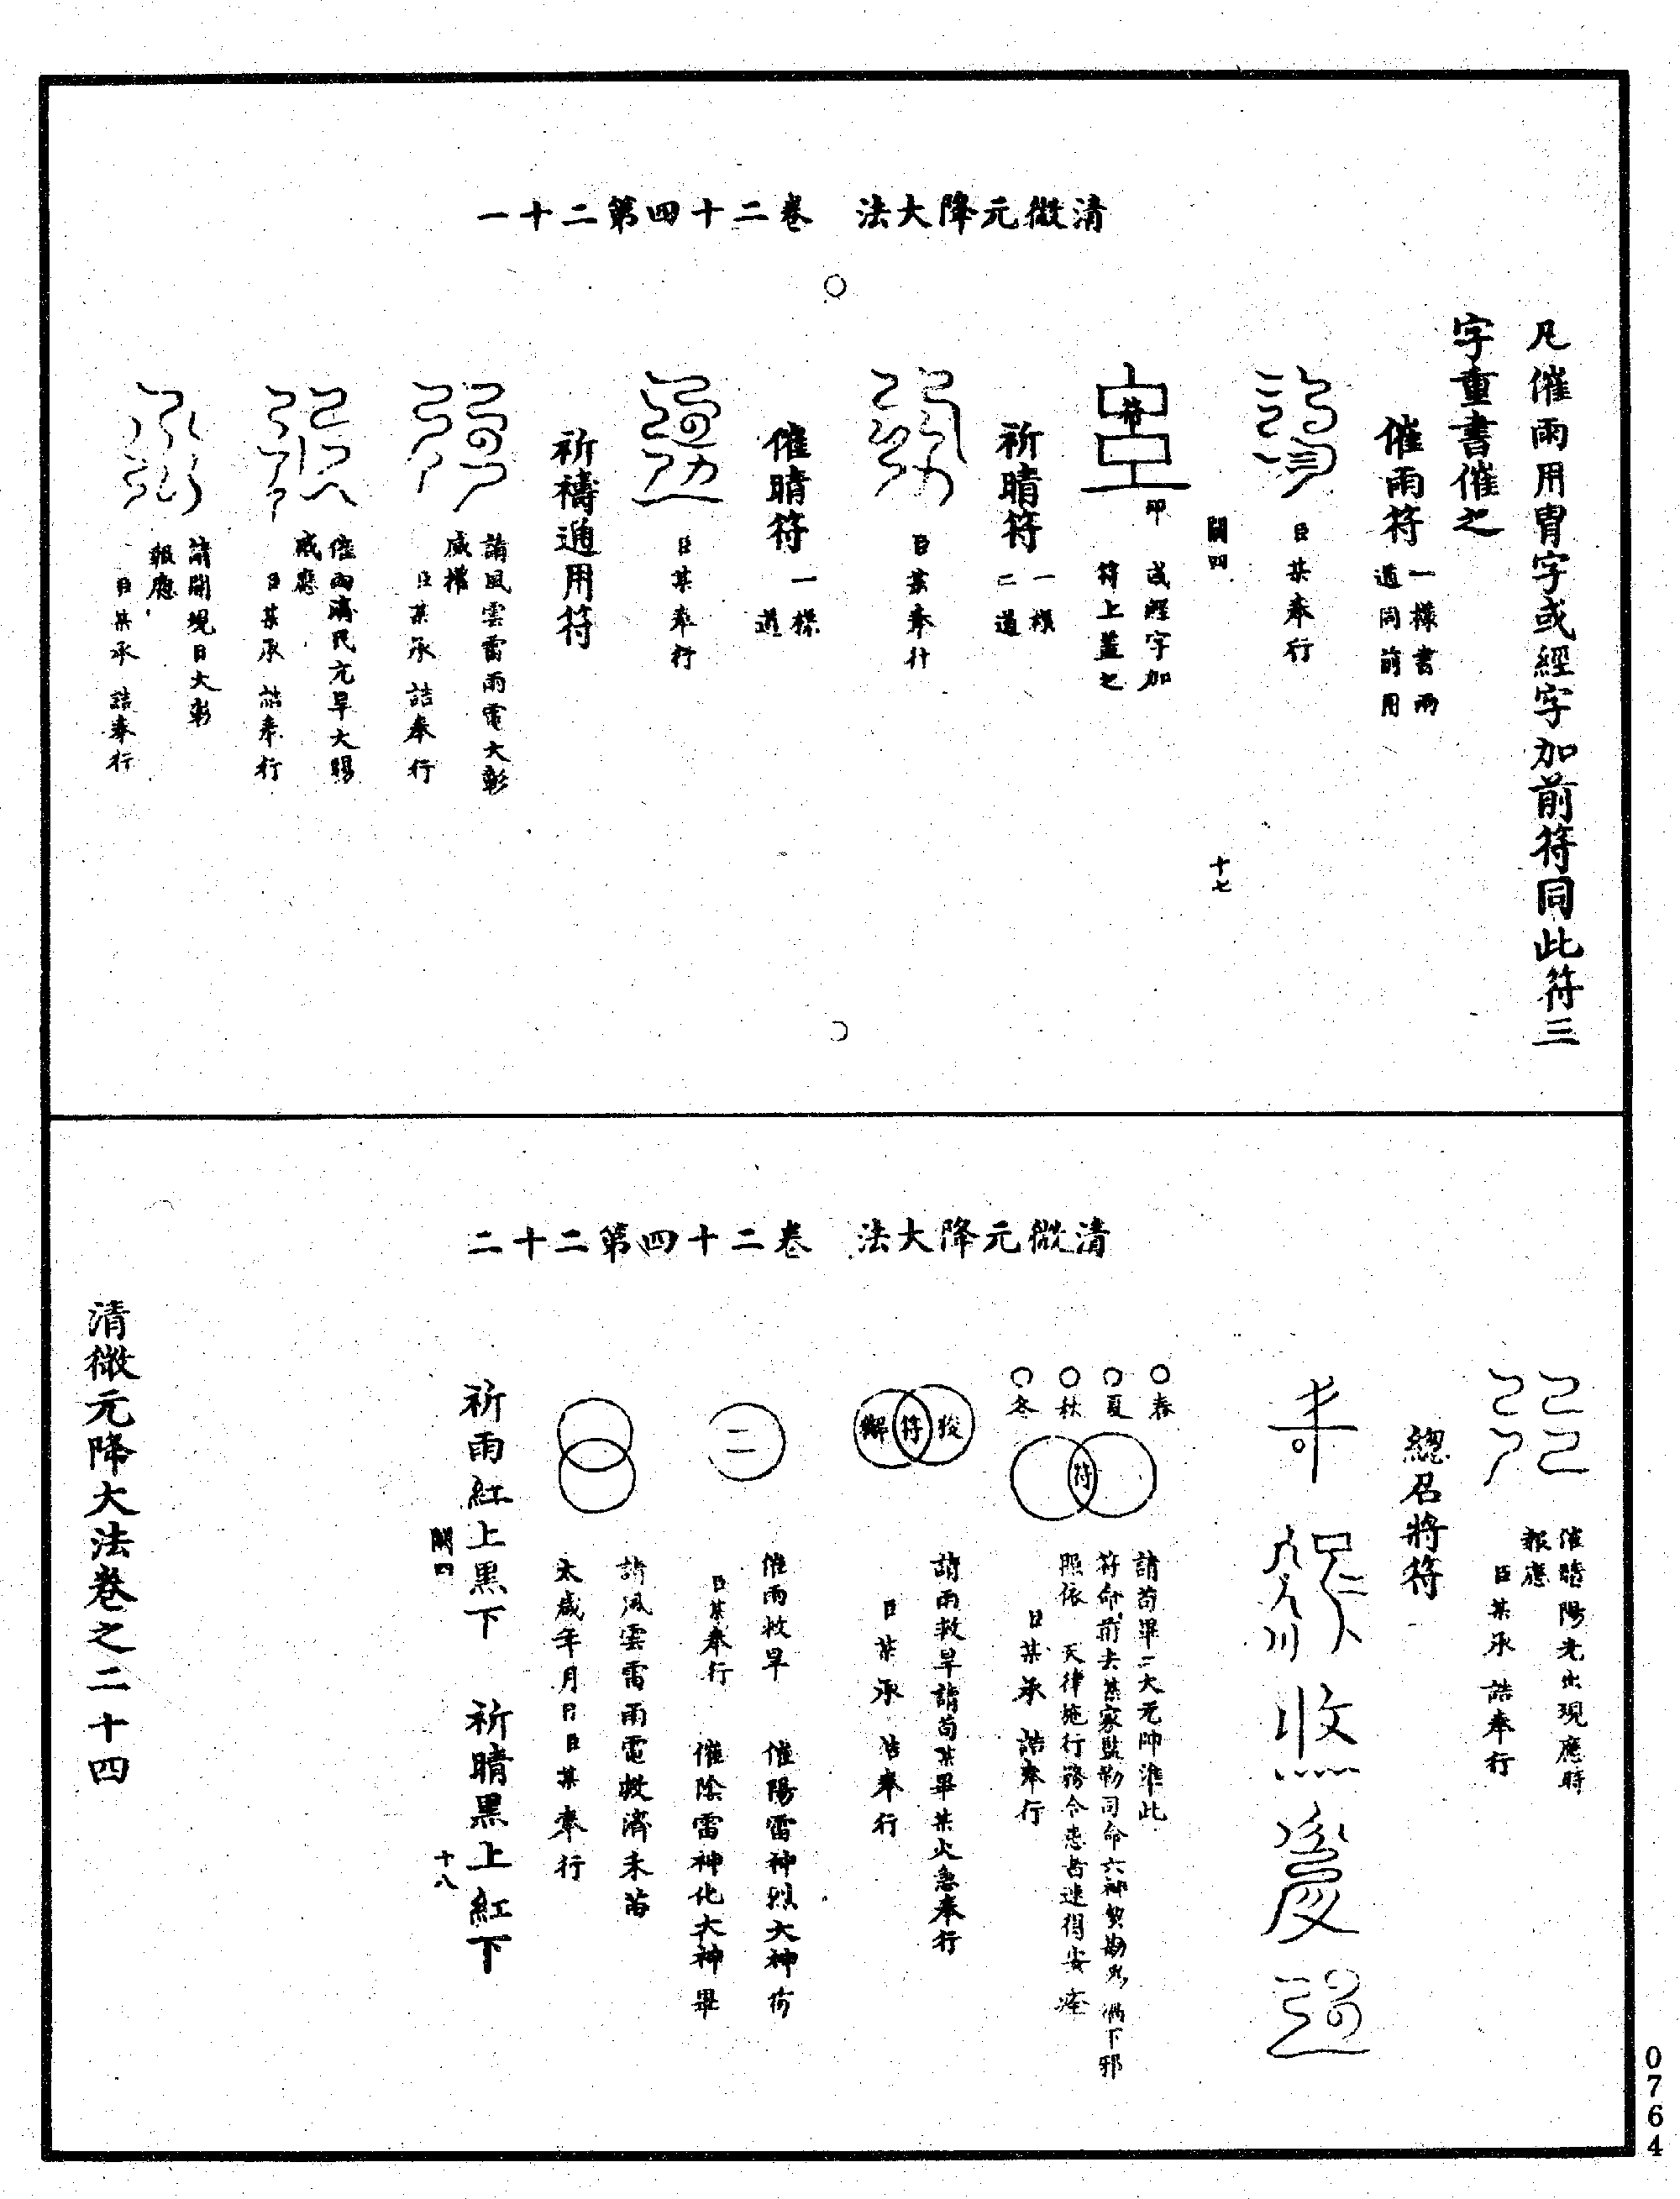 清微元降大法　卷二十四第二十一
凡催雨用胄字或經字加前符同此符三
字重書催之
催雨符　一樣書兩
道同前用
臣某奉行
關四　十七
符
印　或經字加
符上蓋之
祈晴符　一樣
二道
臣某奉行
催晴符　一樣
道
臣某奉行
祈禱通用符
請風雲雷雨電大彰
威權
臣某承　誥奉行
催雨濟民亢旱大賜
感應
臣某承　誥奉行
請開現日大彰
報應
臣某承　誥奉行
清微元降大法　卷二十四第二十二
催晴陽光出現應時
報應
臣某承　誥奉行
總召將符
春
夏
秋
冬
符
請苟畢二大元帥準此
符命前去某家監勒司命六神
照依　天律施行務令患者速得安痊
臣某承　誥奉行
符
請雨救旱請苟某畢某火急奉行
臣某承　誥奉行
二
催雨救旱　催陽雷神烈大神苟
臣某奉行　催陰雷神化大神畢
請風雲雷雨電救濟未苗
太歲年月日臣某奉行
祈雨紅上黑下　祈晴黑上紅下
關四　十八
清微元降大法卷之二十四
0764